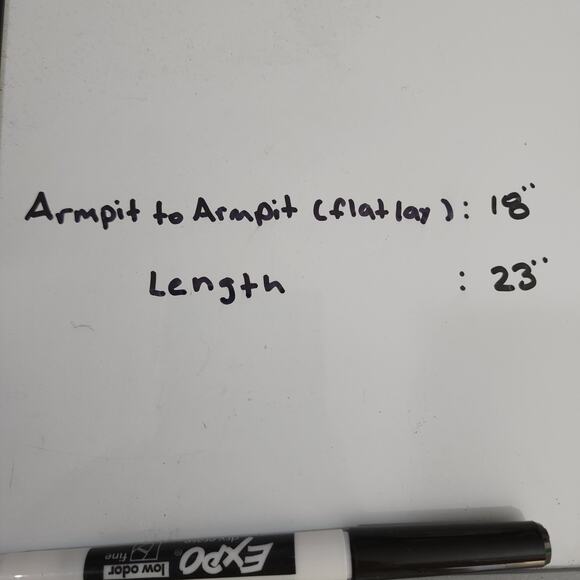 Armpit to Armpit (flat lay): 18"
Length : 23"
EXPO®
low odor
fine